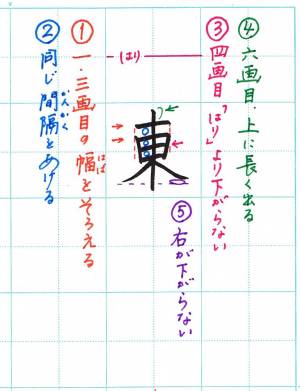 ④六画目、上に長く出る
③四画目「はり」より下がらない
⑤右が下がらない
はり
東
①一・三画目の幅をそろえる
はば
②同じ間隔をあける
かんかく